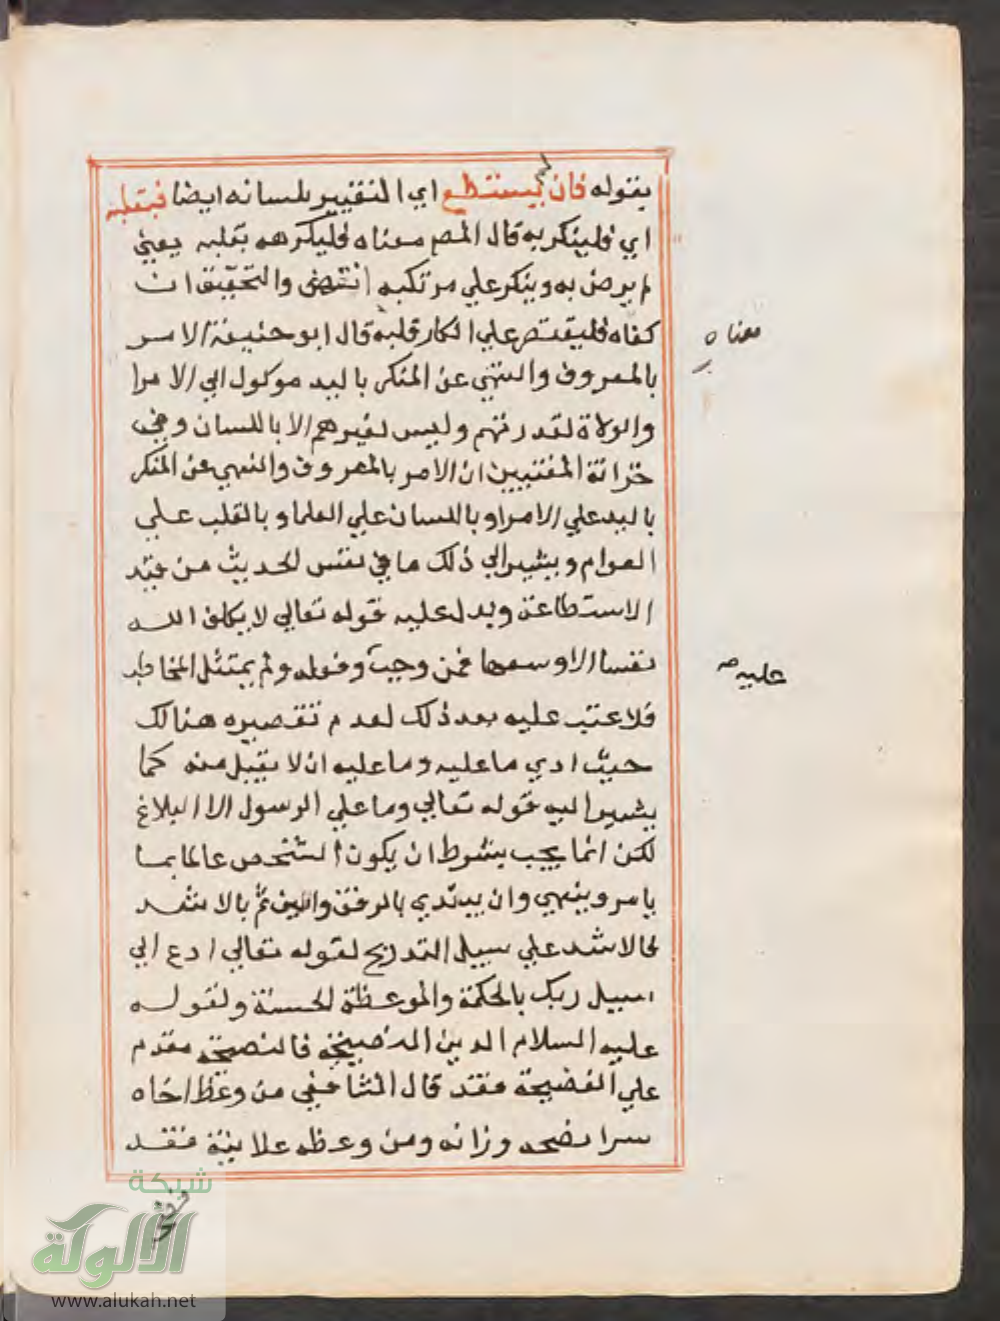 بقوله فان لم يستطع اي التغيير بلسانه ايضا فبقلبه
اي فلينكر به قال المص معناه فليكرهه بقلبه يعني
لم يرض به وينكر علي مرتكبه انتهى والتحقيق ان
كفاه فليقتصر علي انكار قلبه قال ابو حنيفة الامر
بالمعروف والنهي عن المنكر باليد موكول الي الامرا
والولاة لقدرتهم وليس لغيرهم الا باللسان وفي
خزانة المفتيين ان الامر بالمعروف والنهي عن المنكر
باليد علي الامرا وباللسان علي العلما وبالقلب علي
العوام ويشير الي ذلك ما في نفس الحديث من قيد
الاستطاعة ويدل عليه قوله تعالي لا يكلف الله
نفسا الا وسعها فمن وجبت وفعله ولم يمتثل المخاطب
فلا عتب عليه بعد ذلك لعدم تقصيره هنالك
حيث ادي ما عليه وما عليه ان لا يقبل منه كما
يشير اليه قوله تعالي وما علي الرسول الا البلاغ
لكن انما يجب بشرط ان يكون الشخص عالما بما
يامر وينهي وان يبتدي بالرفق واللين ثم بالاشد
فالاشد علي سبيل التدريج لقوله تعالي ادع الي
سبيل ربك بالحكمة والموعظة الحسنة ولقوله
عليه السلام الدين النصيحة فالنصيحة مقدم
علي الفضيحة فقد قال الشافعي من وعظ اخاه
سرا نصحه وزانه ومن وعظه علانية فقد
معناه
عليه صح
شبكة
الألوكة
www.alukah.net